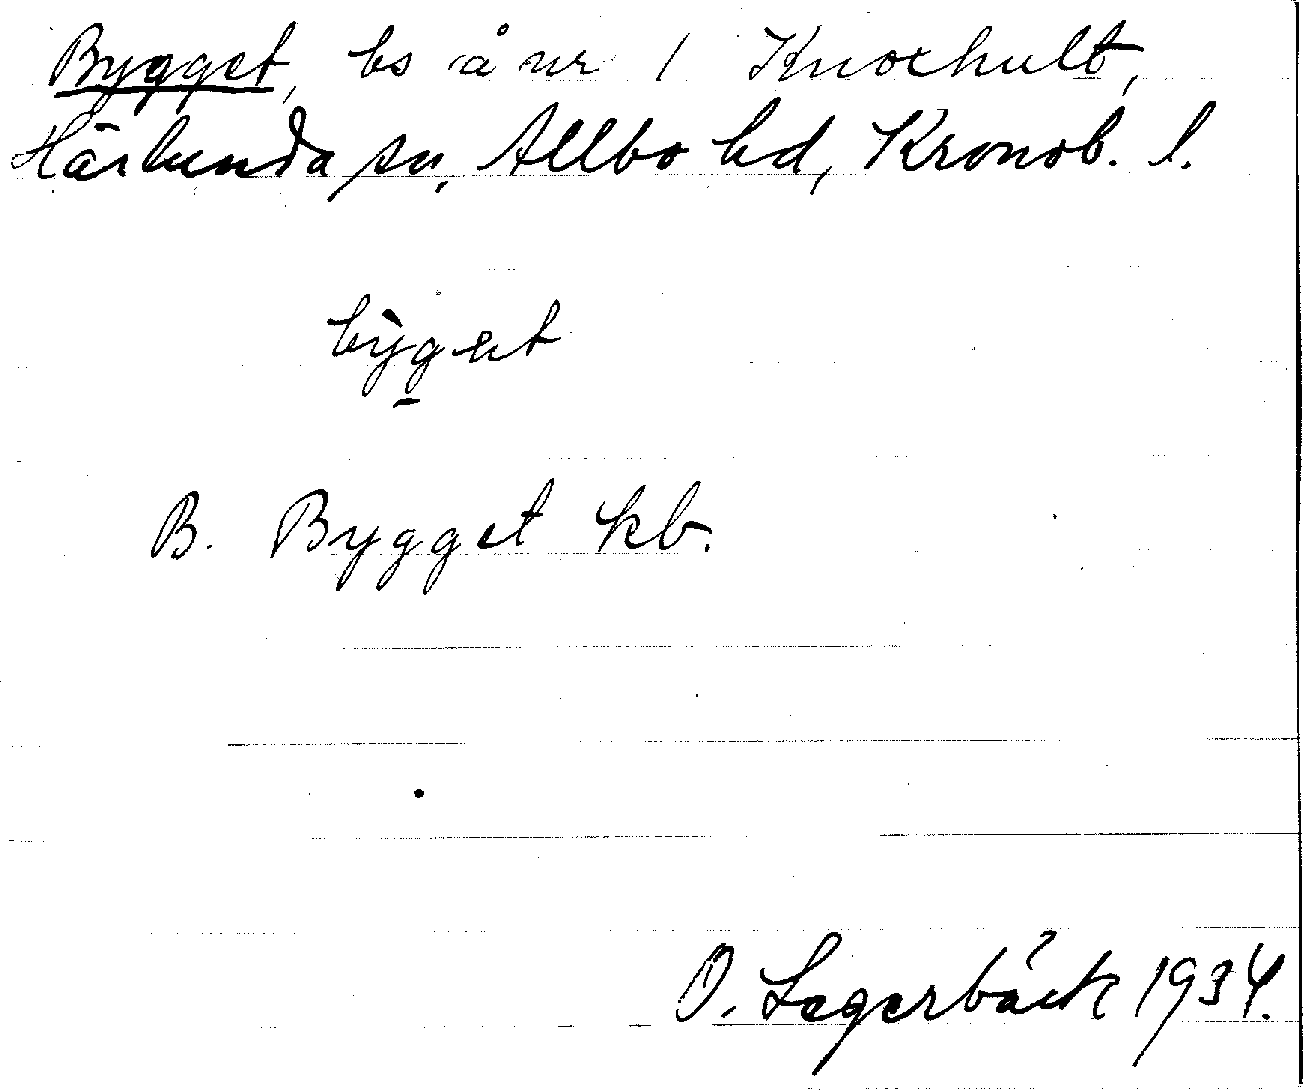 Bygget, bs å nr 1 Knoxhult,
Härlunda sn, Allbo hd, Kronob. l.
B. Bygget kb.
O. Lagerbäck 1934.